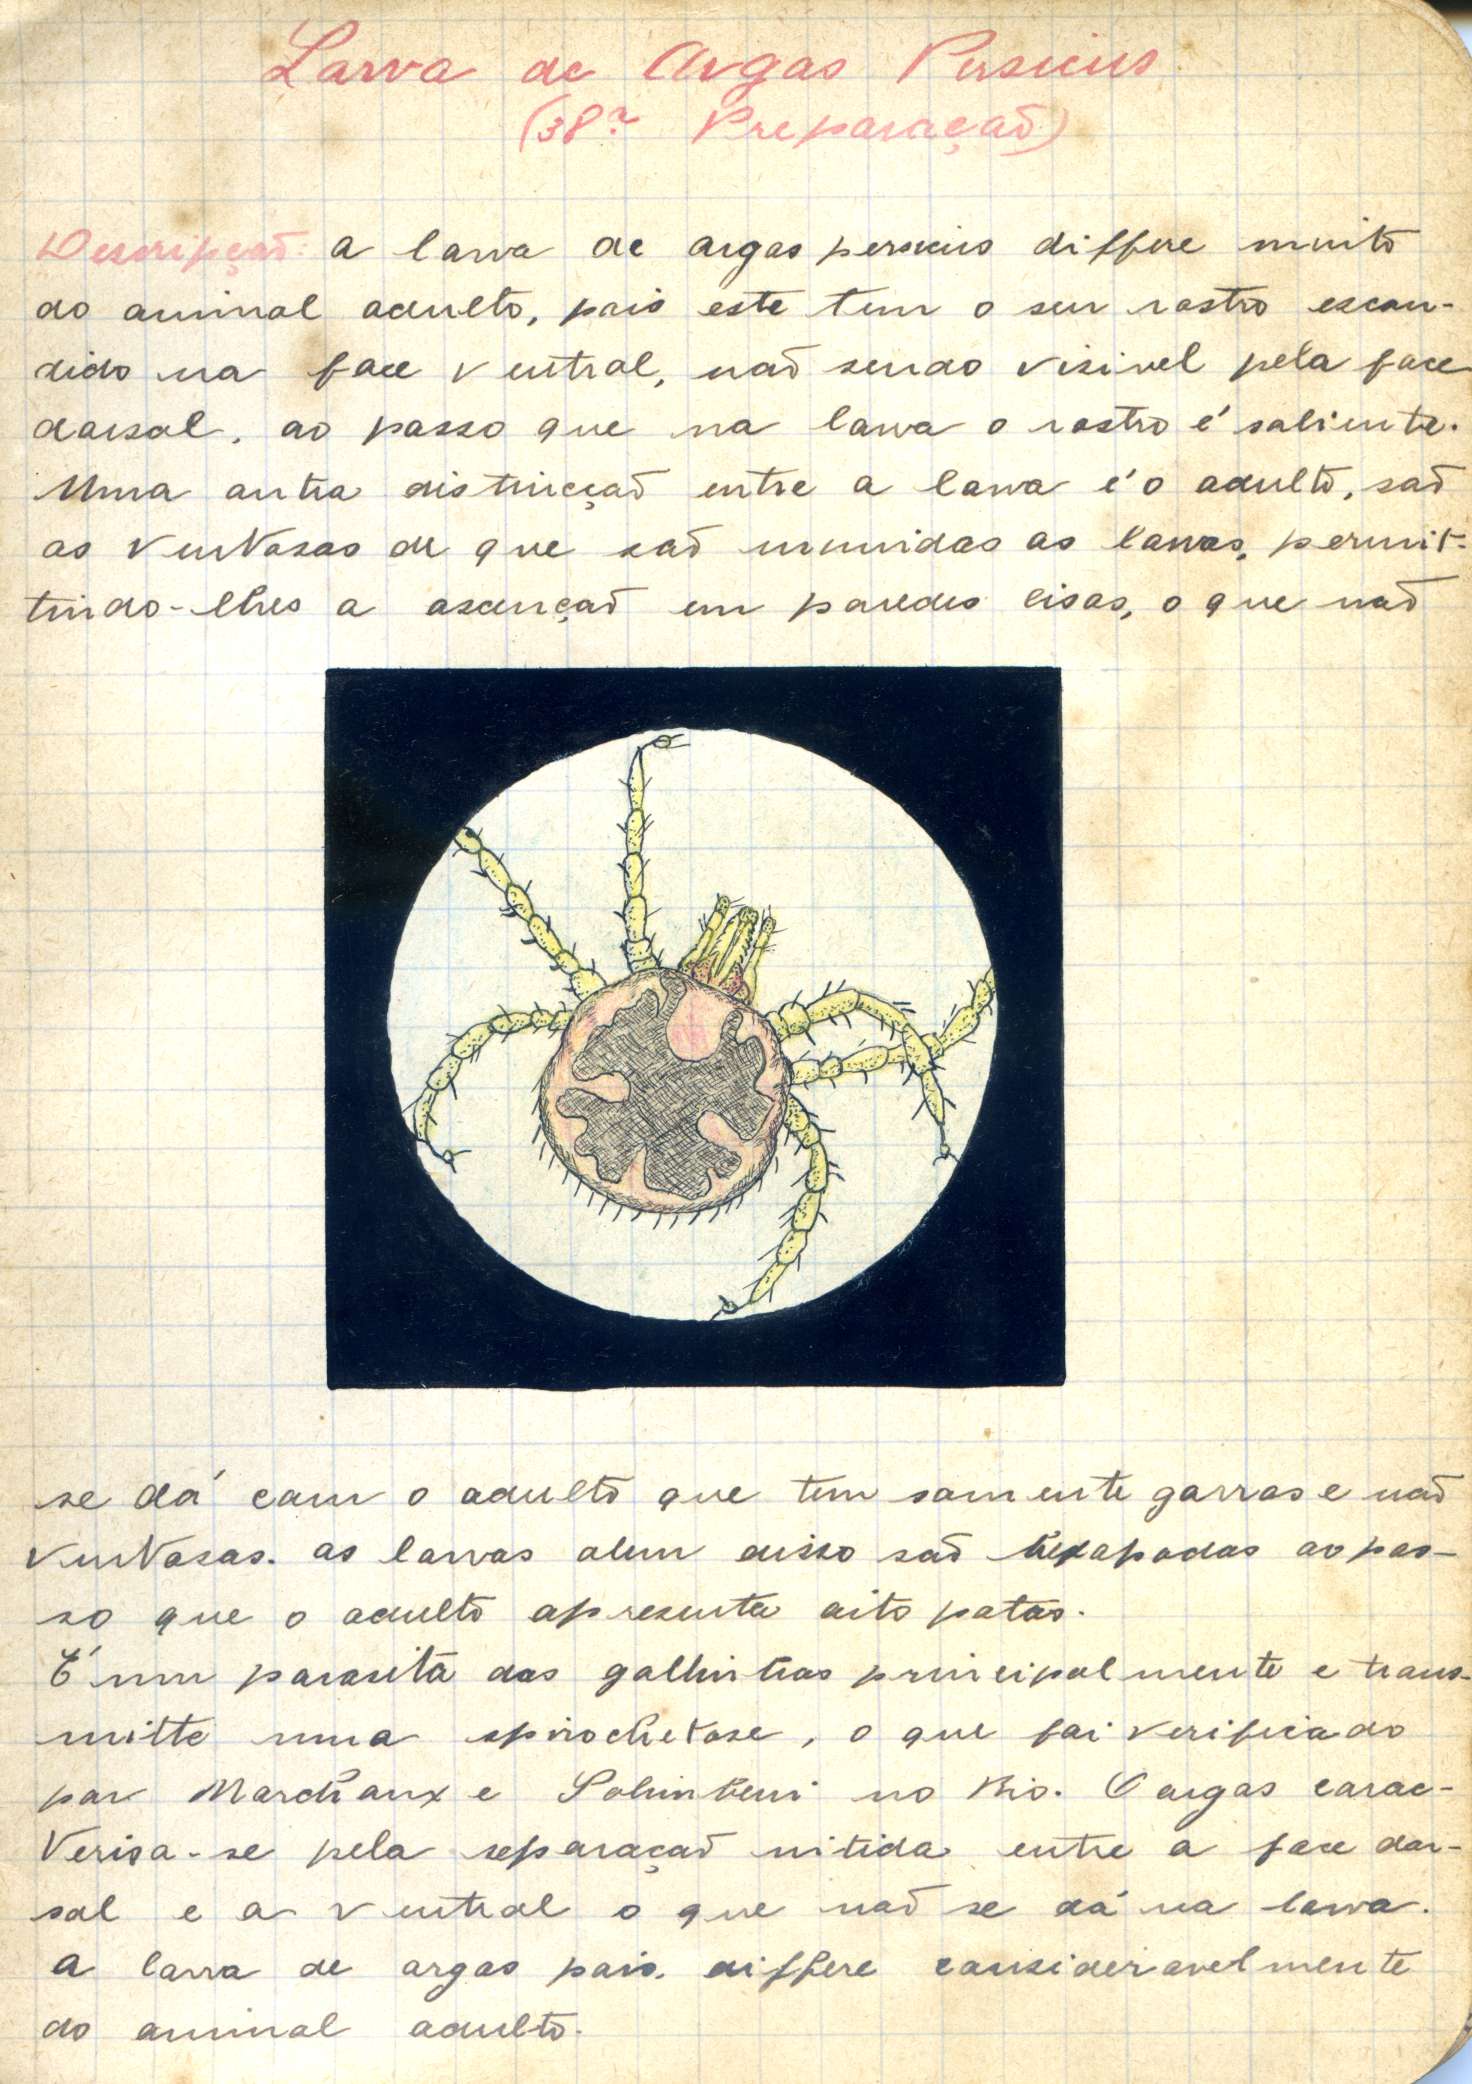 Larva de Argas Persicus
(38ª Preparação)
Descripção: a larva de argas persicus differe muito
do animal adulto, pois este tem o seu rostro escon-
dido na face ventral, não sendo visivel pela face
dorsal, ao passo que na larva o rostro é saliente.
Uma outra distincção entre a larva e o adulto, são
as ventosas de que são munidas as larvas, permit-
tindo-lhes a ascenção em paredes lisas, o que não
se dá com o adulto que tem somente garras e não
ventosas. as larvas alem disso são hexapodas ao pas-
so que o adulto apresenta oito patas.
É um parasita das gallinhas principalmente e trans-
mitte uma spirochetose, o que foi verificado
por Marchoux e Salimbeni no Rio. O argas carac-
terisa-se pela separação nitida entre a face dor-
sal e a ventral o que não se dá na larva.
a larva de argas pois. differe consideravelmente
do animal adulto.